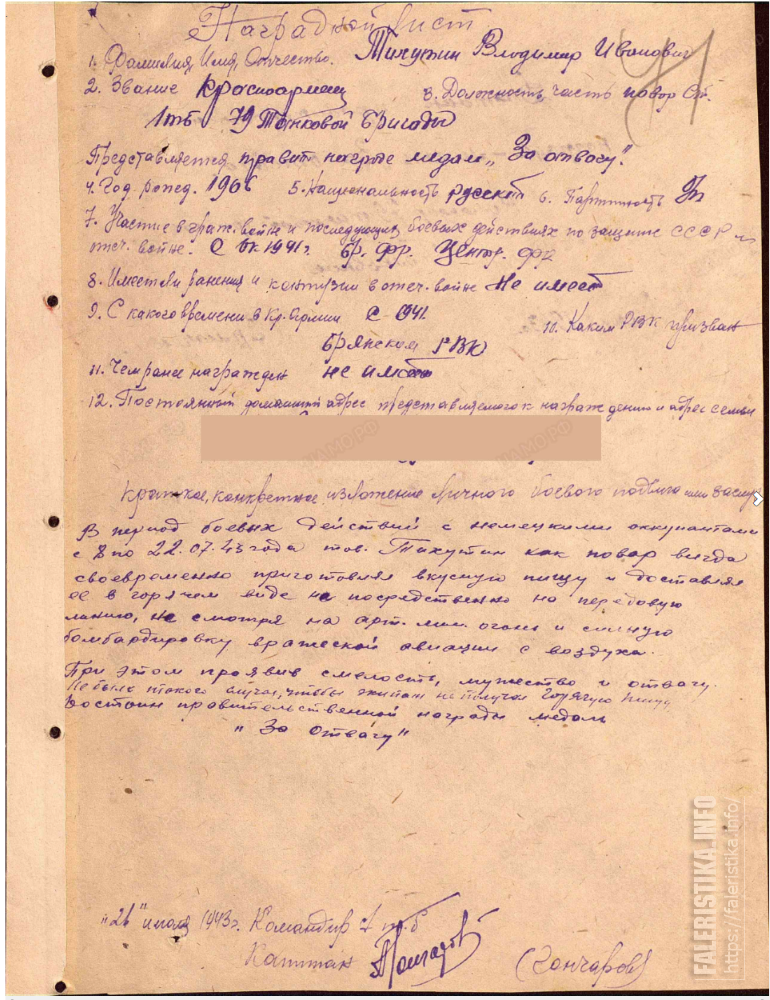 Наградной лист
1. Фамилия, Имя, Отчество. Владимир Иванович
2. Звание красноармеец 3. Должность, часть повар
79 Танковой бригады
Представляется к правит. награде медаль „За отвагу".
4. Год рожд. 1906 5. Национальность русский 6. Партийность
7. Участие в граж. войне и последующих боевых действиях по защите СССР и
отеч. войне. С 1941 г. Бр. фр. Центр. фр.
8. Имеет ли ранения и контузии в отеч. войне Не имеет
9. С какого времени в Кр. Армии С 1941. 10. Каким РВК призван
Брянским РВК
11. Чем ранее награжден не имеет
12. Постоянный домашний адрес представляемого к награждению и адрес семьи
Краткое, конкретное изложение личного боевого подвига или заслуг
В период боевых действий с немецкими оккупантами
с 8 по 22.07.43 года тов. Тихутин как повар всегда
своевременно приготовлял вкусную пищу и доставлял
ее в горячем виде непосредственно на передовую
линию, не смотря на арт. мин. огонь и сильную
бомбардировку вражеской авиации с воздуха.
При этом проявив смелость, мужество и отвагу.
Не было такого случая, чтобы не получал горячую пищу
Достоин правительственной награды медаль
„За отвагу"
июля 1943 г. Командир т.б
Капитан (Гончаров)
71
FALERISTIKA.INFO
https://faleristika.info/